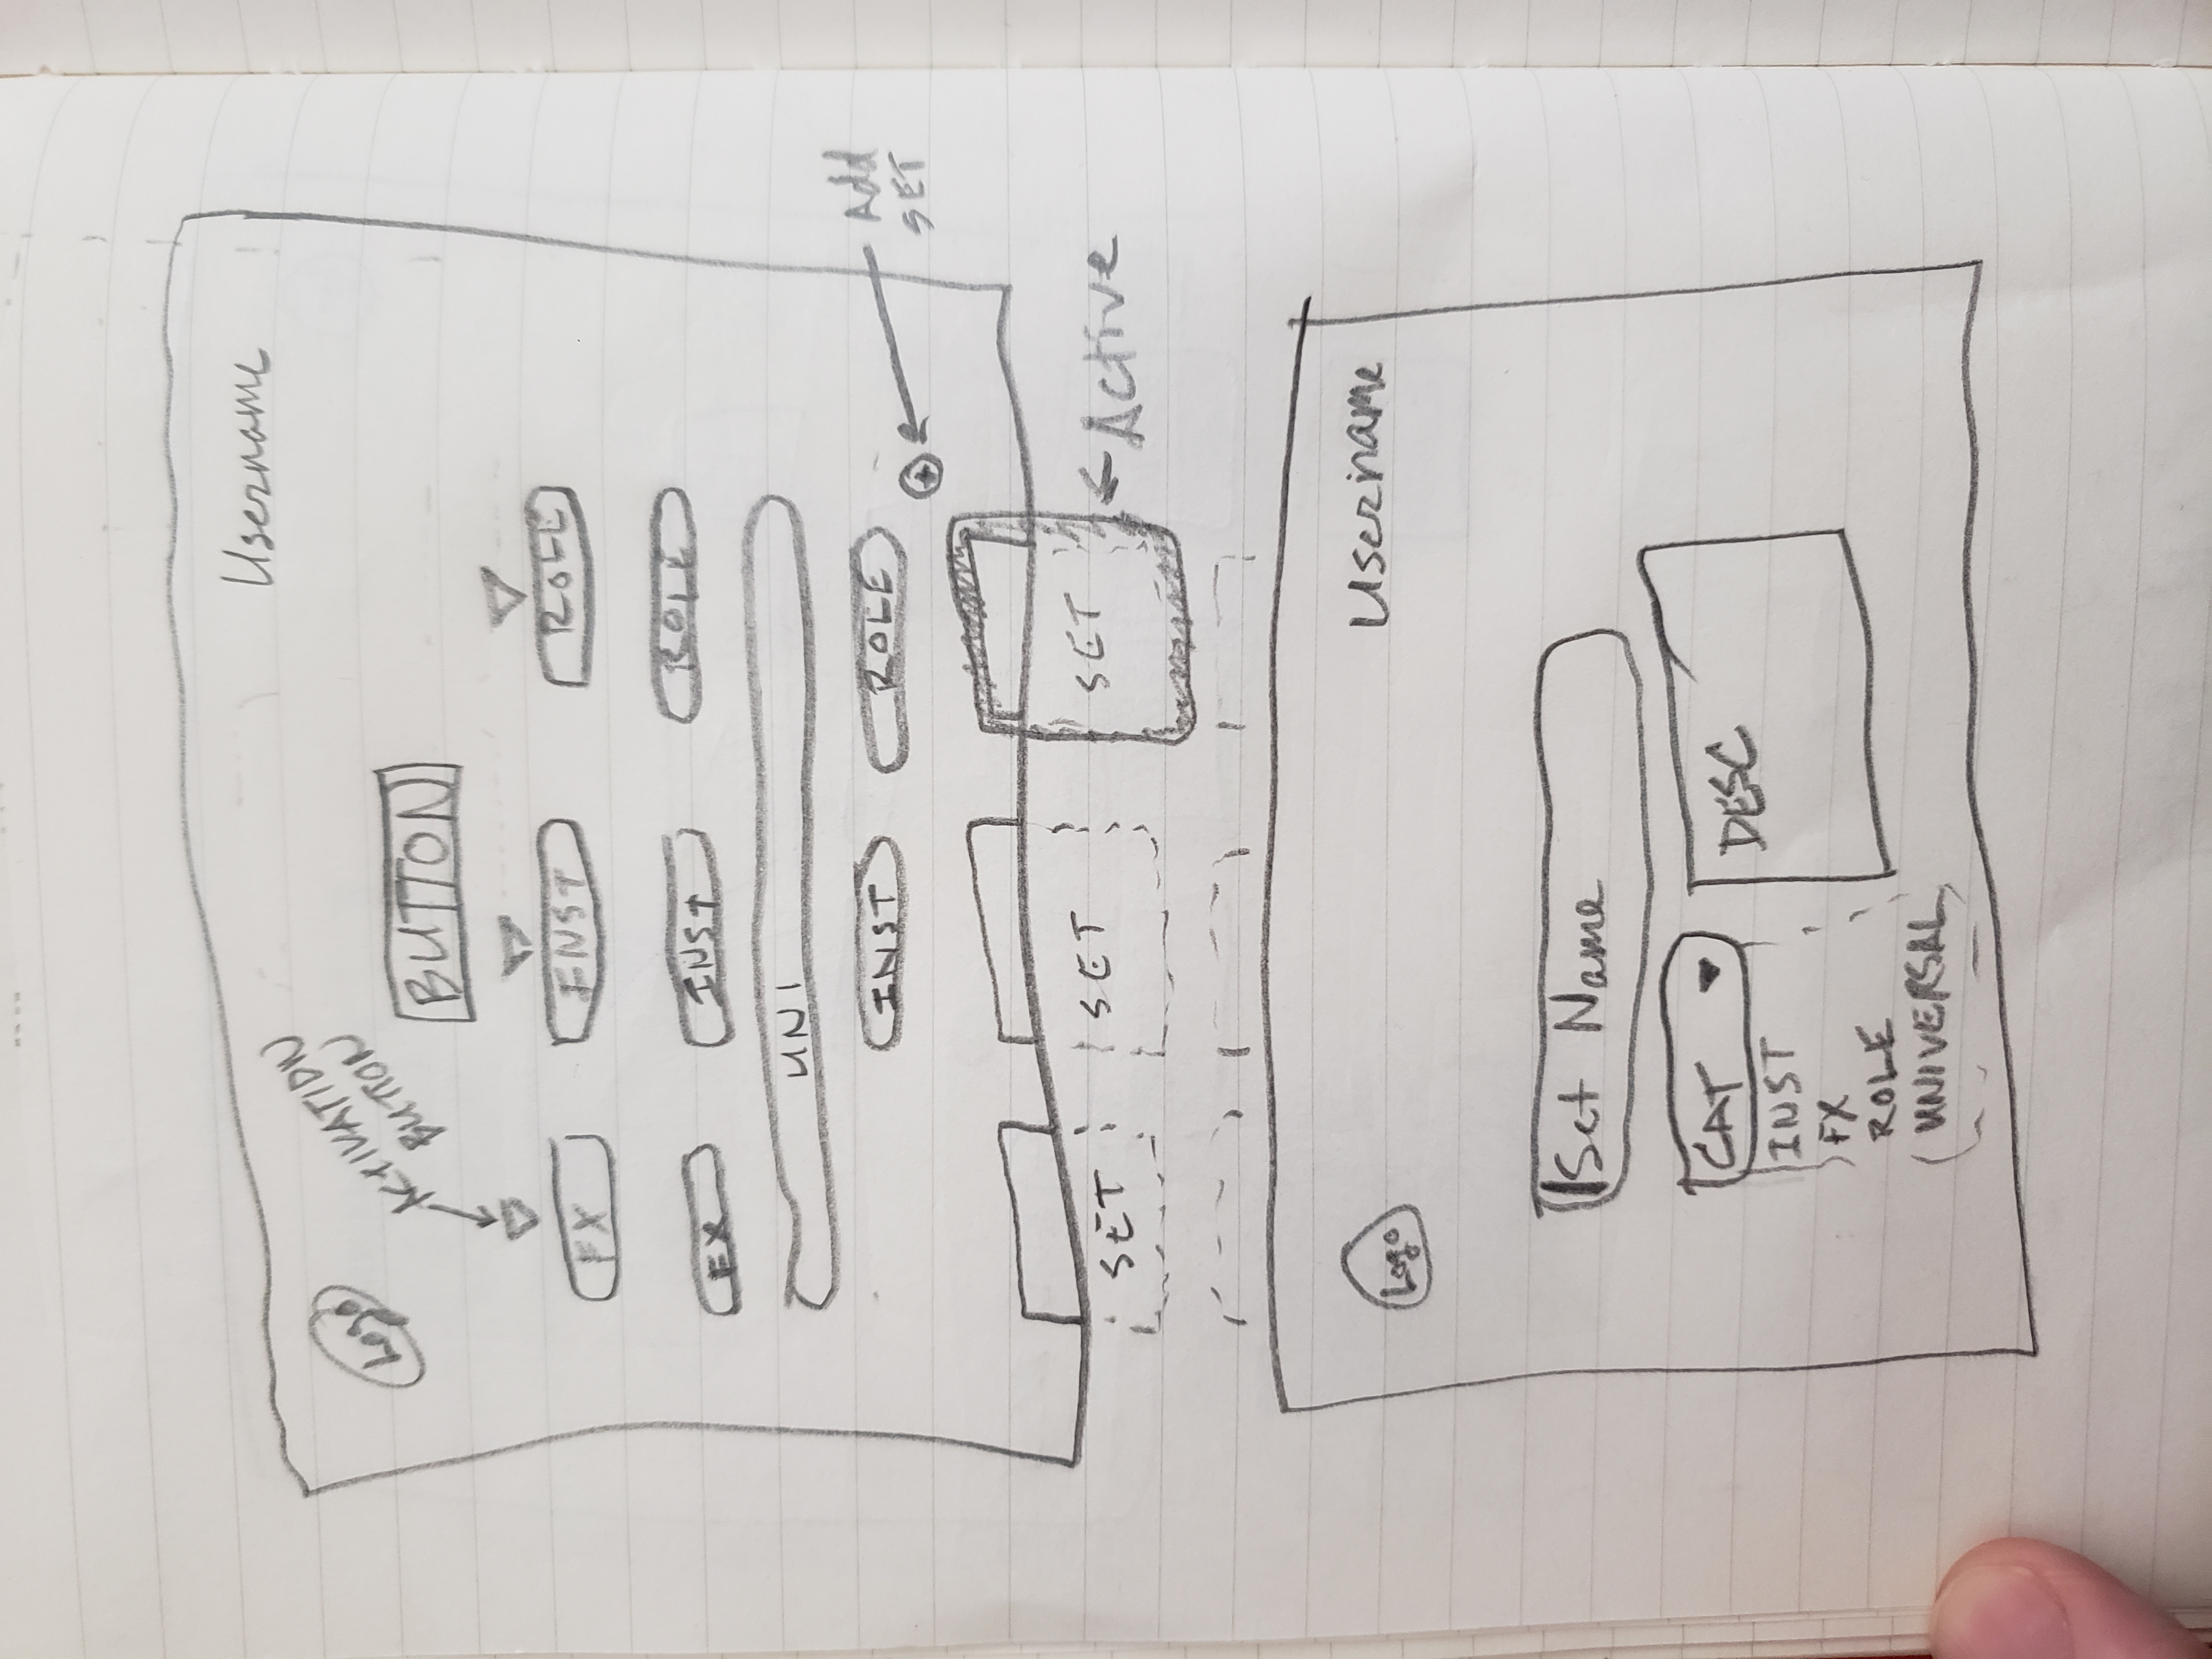 Username
Logo
ACTIVATION
BUTTON
BUTTON
FX
INST
ROLE
FX
INST
ROLE
UNI
INST
ROLE
+
Add
SET
SET
SET
SET
Active
Logo
Username
Set Name
CAT
DESC
INST
FX
ROLE
UNIVERSAL